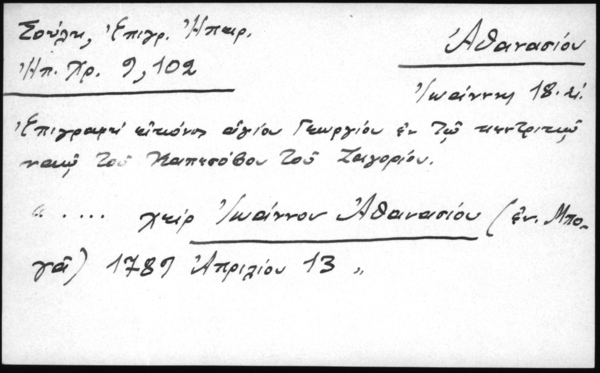 Σούλη, Ἐπιγρ. Ἠπειρ.
Ἠπ. Χρ. 9, 102
Ἀθανασίου
Ἰωάννης 18. αἰ.
Ἐπιγραφὴ εἰκόνος ἁγίου Γεωργίου ἐν τῷ κεντρικῷ
ναῷ τοῦ Καπεσόβου τοῦ Ζαγορίου.
" .... χεὶρ Ἰωάννου Ἀθανασίου (ἐν. Μπο-
γᾶ) 1789 Ἀπριλίου 13 "